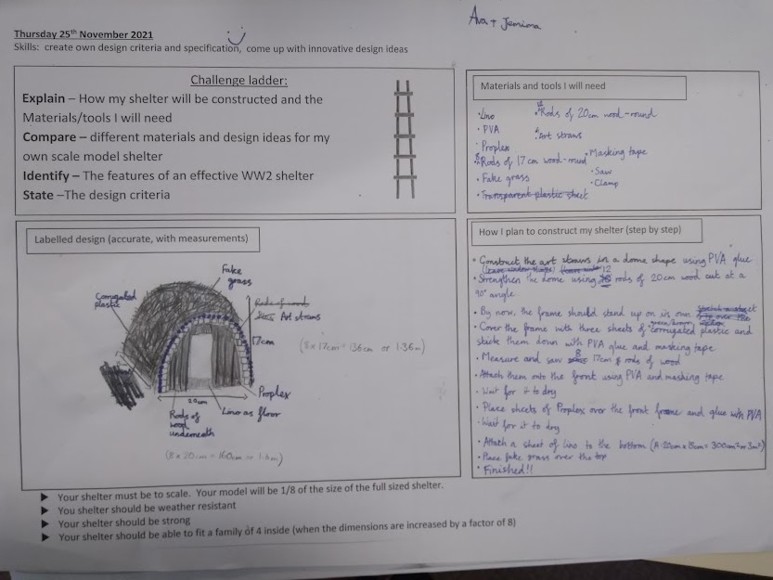 Ava + Jemima
Thursday 25th November 2021
Skills: create own design criteria and specification, come up with innovative design ideas
Challenge ladder:
Explain – How my shelter will be constructed and the
Materials/tools I will need
Compare – different materials and design ideas for my
own scale model shelter
Identify – The features of an effective WW2 shelter
State –The design criteria
Materials and tools I will need
· Lino
· PVA
· Proplex
· Rods of 17cm wood-round
· Fake grass
· Transparent plastic sheet
· Rods of 20cm wood-round
· Art straws
· Masking tape
· Saw
· Clamp
Labelled design (accurate, with measurements)
Fake
grass
Corrugated
plastic
Rods of wood
Art straws
17cm
(8 x 17cm = 136cm or 1.36m)
Proplex
20cm
Lino as floor
Rods of
wood
underneath
(8 x 20cm = 160cm or 1.6m)
How I plan to construct my shelter (step by step)
· Construct the art straws in a dome shape using PVA glue
12
· Strengthen the dome using rods of 20cm wood cut at a
90° angle.
· By now, the frame should stand up on its own
· Cover the frame with three sheets of corrugated plastic and
stick them down with PVA glue and masking tape
· Measure and saw 8 17cm rods of wood
· Attach them onto the front using PVA and masking tape
· Wait for it to dry
· Place sheets of Proplex over the front frame and glue with PVA
· Wait for it to dry
· Attach a sheet of lino to the bottom
· Place fake grass over the top
· Finished!!
➤ Your shelter must be to scale. Your model will be 1/8 of the size of the full sized shelter.
➤ You shelter should be weather resistant
➤ Your shelter should be strong
➤ Your shelter should be able to fit a family of 4 inside (when the dimensions are increased by a factor of 8)